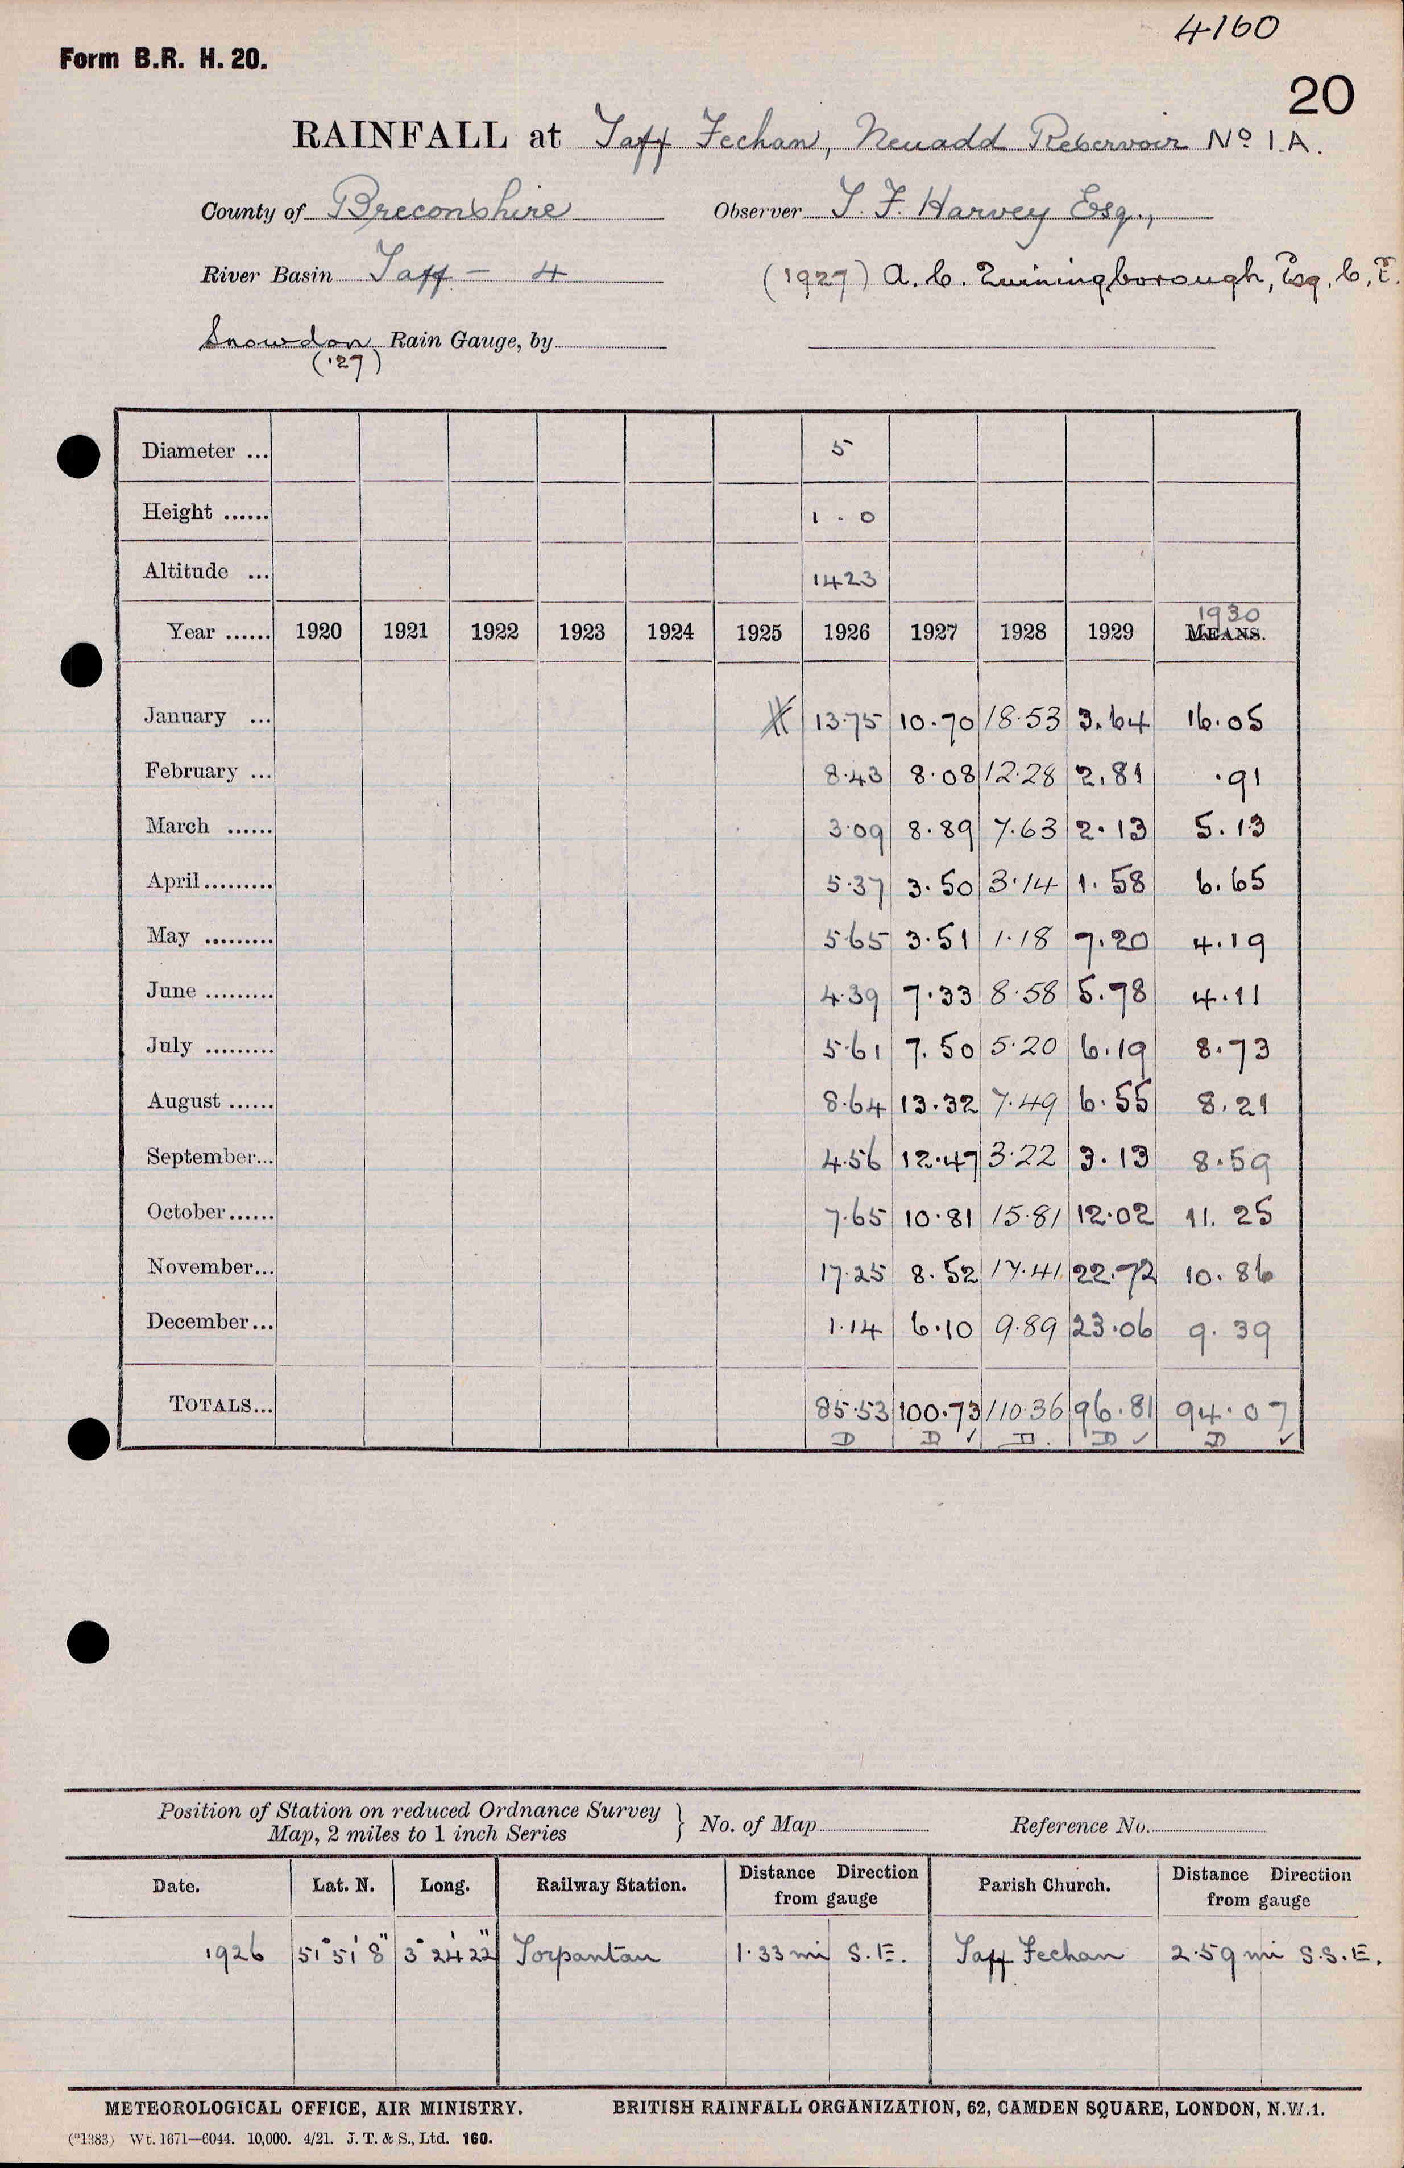 4160
Form B.R. H. 20.
20
RAINFALL at Taff Fechan, Neuadd Reservoir No 1.A.
County of Breconshire Observer T. F. Harvey Esq.,
River Basin Taff - 4 (1927) A. C. Twiningborough, Esq, C. E.
Snowdon Rain Gauge, by
('27)
Diameter ... 5
Height ...... 1 - 0
Altitude ... 1423
1930
Year ...... 1920 1921 1922 1923 1924 1925 1926 1927 1928 1929 MEANS.
January ... 13.75 10.70 18.53 3.64 16.05
February ... 8.43 8.08 12.28 2.81 .91
March ...... 3.09 8.89 7.63 2.13 5.13
April ......... 5.37 3.50 3.14 1.58 6.65
May ......... 5.65 3.51 1.18 7.20 4.19
June ......... 4.39 7.33 8.58 5.78 4.11
July ......... 5.61 7.50 5.20 6.19 8.73
August ...... 8.64 13.32 7.49 6.55 8.21
September... 4.56 12.47 3.22 3.13 8.59
October ...... 7.65 10.81 15.81 12.02 11.25
November... 17.25 8.52 17.41 22.72 10.86
December... 1.14 6.10 9.89 23.06 9.39
TOTALS... 85.53 100.73 110.36 96.81 94.07
D D ✓ D. D ✓ D ✓
Position of Station on reduced Ordnance Survey
Map, 2 miles to 1 inch Series } No. of Map Reference No.
Date. Lat. N. Long. Railway Station. Distance Direction from gauge Parish Church. Distance Direction from gauge
1926 51° 51' 8" 3° 24' 22" Torpantau 1.33 mi S.E. Taff Fechan 2.59 mi S.S.E.
METEOROLOGICAL OFFICE, AIR MINISTRY. BRITISH RAINFALL ORGANIZATION, 62, CAMDEN SQUARE, LONDON, N.W.1.
(*1383) Wt. 1671—6044. 10,000. 4/21. J. T. & S., Ltd. 160.